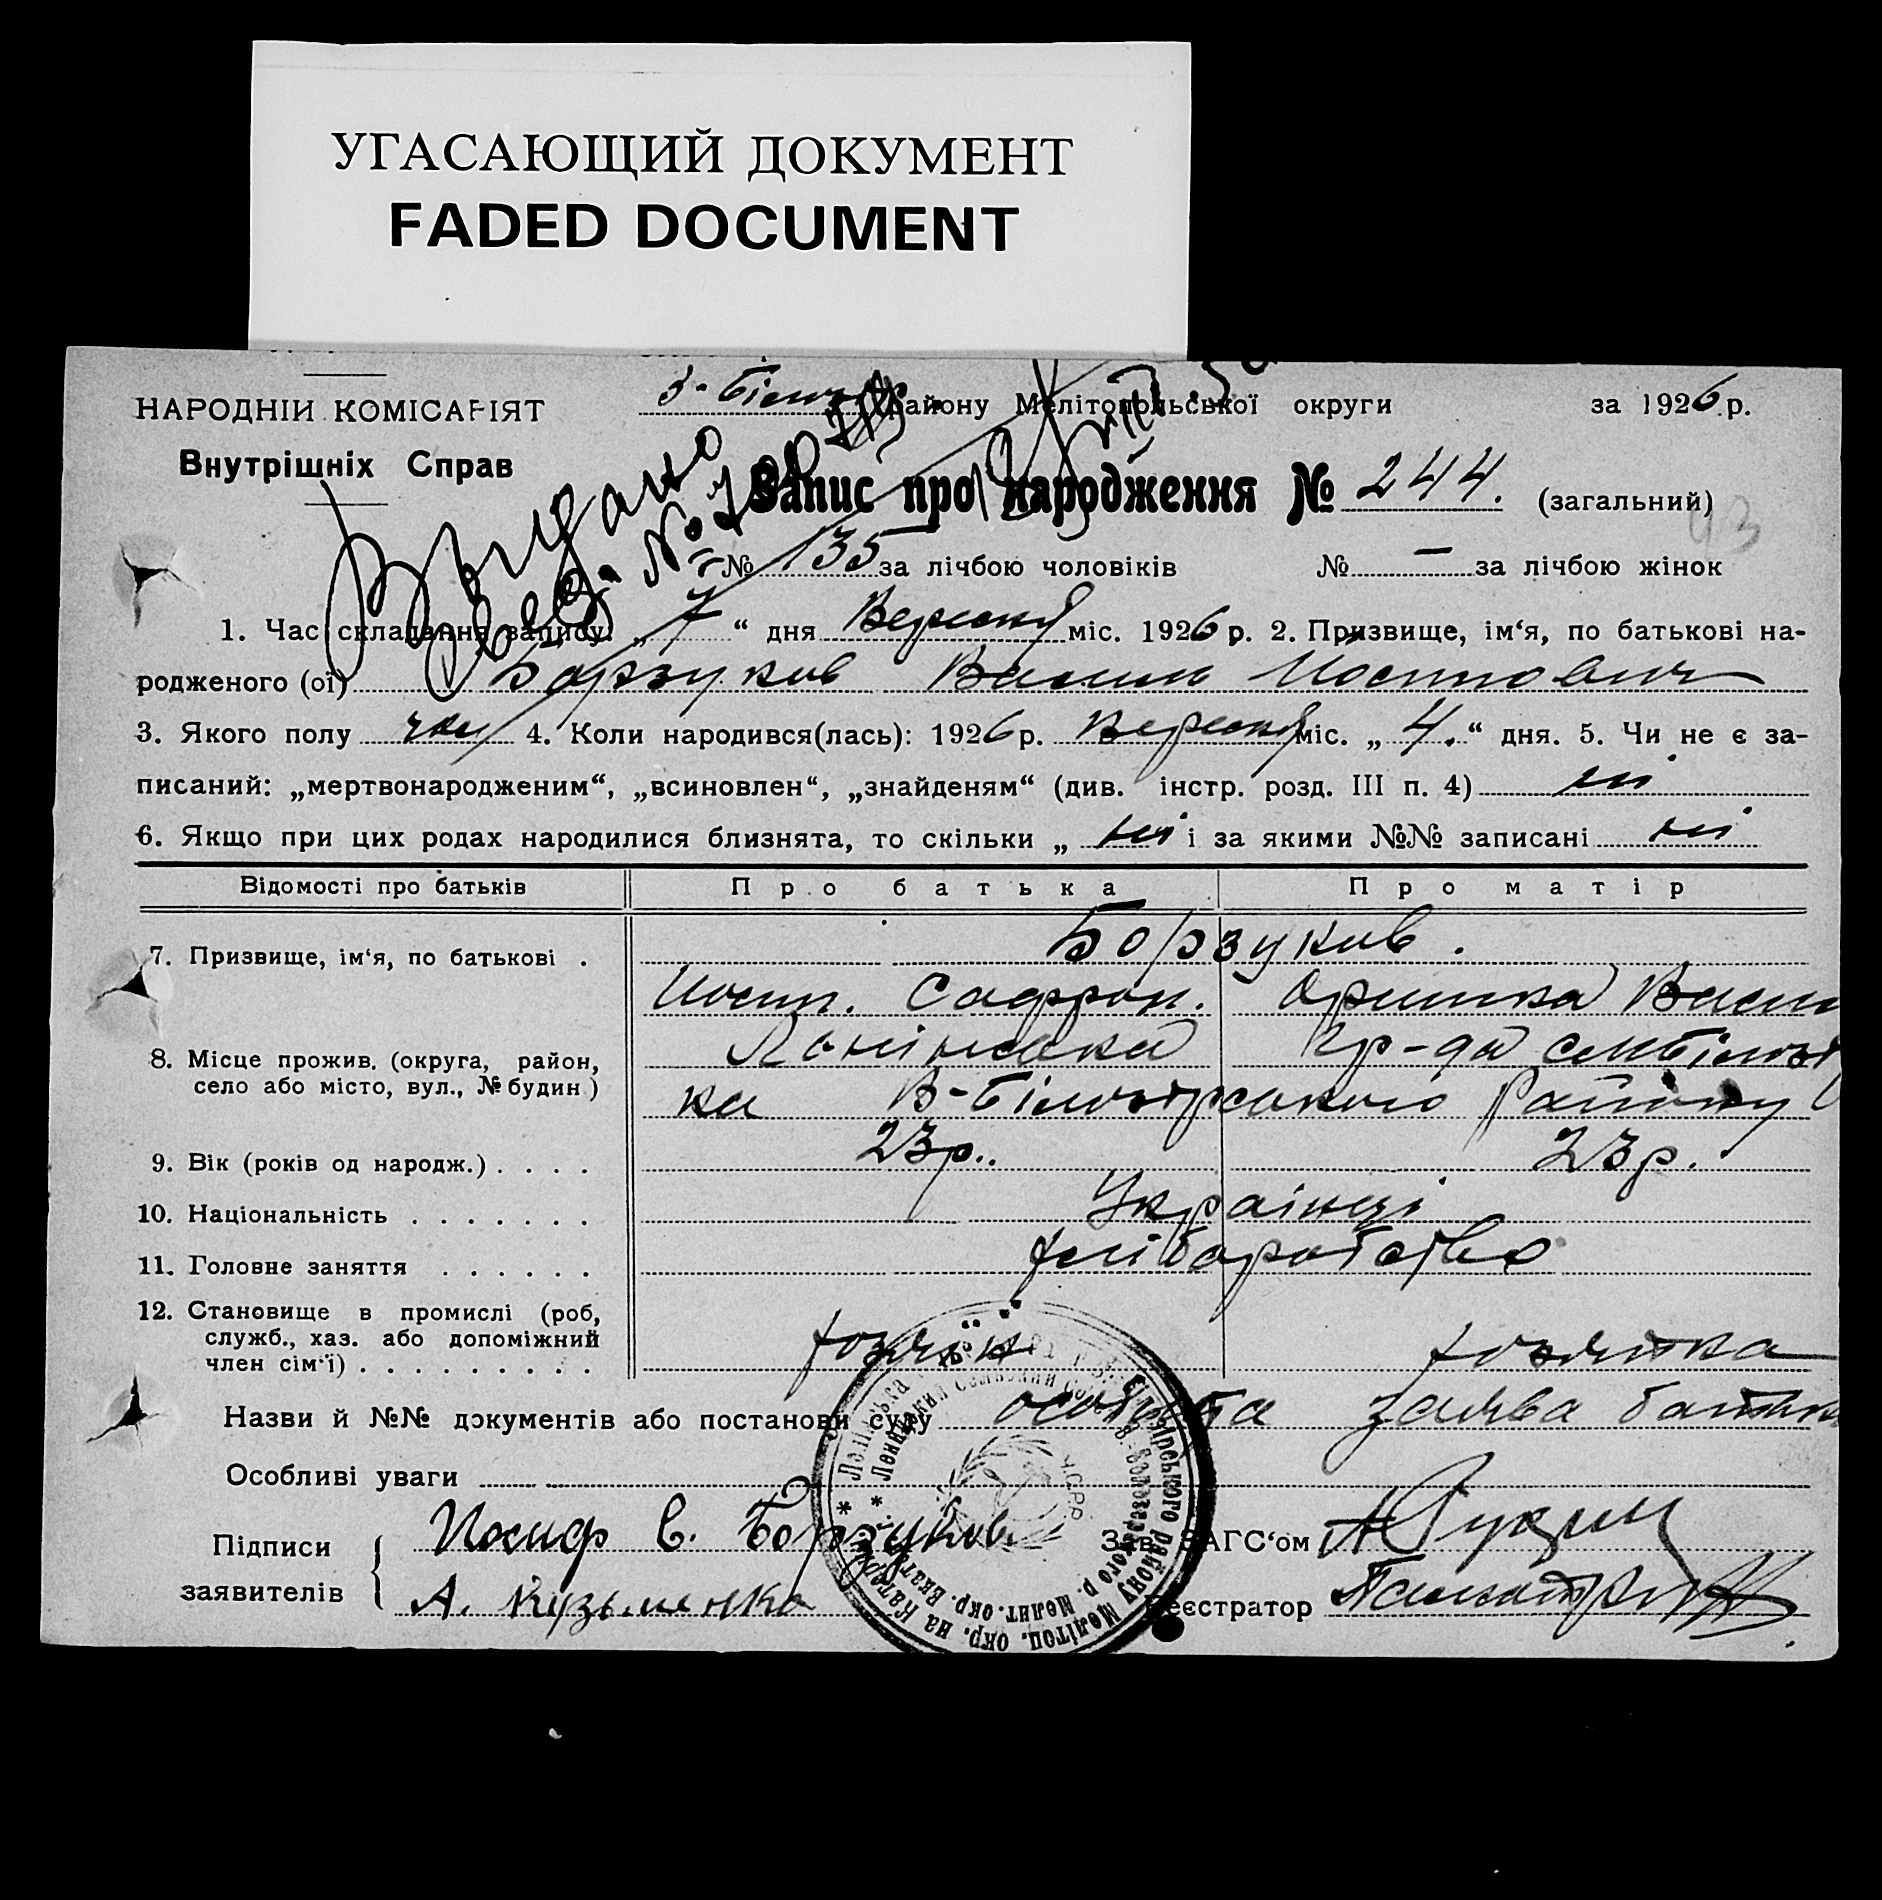 УГАСАЮЩИЙ ДОКУМЕНТ
FADED DOCUMENT
НАРОДНІИ КОМІСАРІЯТ
Внутрішніх Справ
району Мелітопольської округи за 1926 р.
Видано
Запис про народження № 244. (загальний)
93
№ 135 за лічбою чоловіків № — за лічбою жінок
1. Час складання запису: „ 7 “ дня Вересня міс. 1926 р. 2. Призвище, ім‘я, по батькові на-
родженого (ої) Борзуків Йосипович
3. Якого полу чол 4. Коли народився(лась): 1926 р. Вересня міс. „ 4. “ дня. 5. Чи не є за-
писаний: „мертвонародженим“, „всиновлен“, „знайденям“ (див. інстр. розд. III п. 4) ні
6. Якщо при цих родах народилися близнята, то скільки „ ні і за якими №№ записані ні
Відомості про батьків Про батька Про матір
7. Призвище, ім‘я, по батькові . Борзуків.
Йосип. Софрон. Оришка Васил
8. Місце прожив. (округа, район,
село або місто, вул., № будин)
ка В-Білозірського Району
9. Вік (років од народж.) . . . . 23р.. 23р.
10. Національність . . . . . . . Українці
11. Головне заняття . . . . . . хліборобство
12. Становище в промислі (роб,
служб., хаз. або допоміжний
член сім‘ї) . . . . . . . . . хозяїн хозяйка
Назви й №№ документів або постанови суду особиста заява батька
Особливі уваги
Підписи
заявителів
Иосиф С. Борзуков
А. Кузьменко
Зав. ЗАГС‘ом
Реєстратор